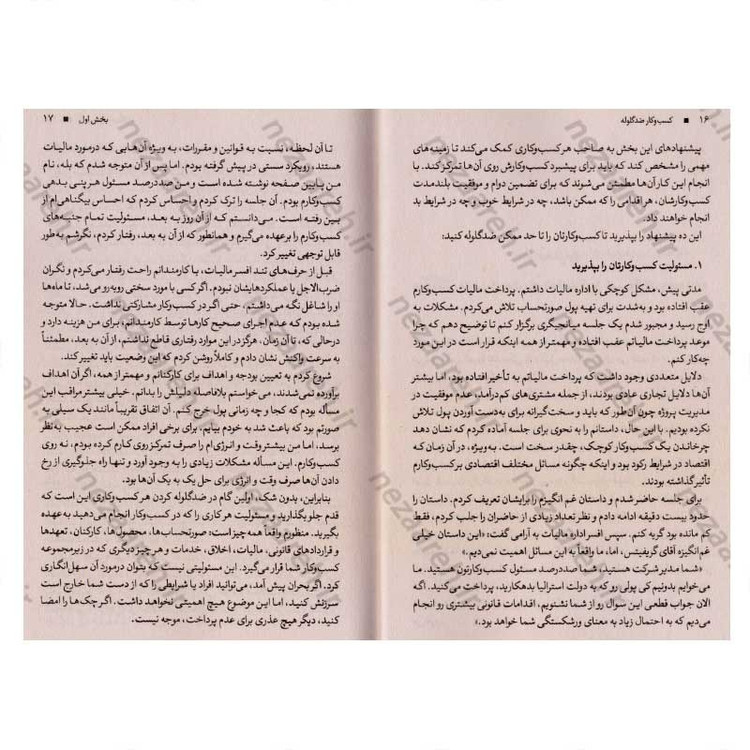 ۱۶ ■ کسب‌وکار ضدگلوله
پیشنهادهای این بخش به صاحب هر کسب‌وکاری کمک می‌کند تا زمینه‌های
مهمی را مشخص کند که باید برای پیشبرد کسب‌وکارش روی آن‌ها تمرکز کند. با
انجام این کار آن‌ها مطمئن می‌شوند که برای تضمین دوام و موفقیت بلندمدت
کسب‌وکارشان، هر اقدامی را که ممکن باشد، چه در شرایط خوب و چه در شرایط بد
انجام خواهند داد.
این ده پیشنهاد را بپذیرید تا کسب‌وکارتان را تا حد ممکن ضدگلوله کنید:
۱. مسئولیت کسب‌وکارتان را بپذیرید
مدتی پیش، مشکل کوچکی با اداره مالیات داشتم، پرداخت مالیات کسب‌وکارم
عقب افتاده بود و به‌شدت برای تهیه پول صورتحساب تلاش می‌کردم. مشکلات به
اوج رسید و مجبور شدم یک جلسه میانجیگری برگزار کنم تا توضیح دهم که چرا
موعد پرداخت مالیاتم عقب افتاده و مهمتر از همه اینکه قرار است در این مورد
چه‌کار کنم.
دلایل متعددی وجود داشت که پرداخت مالیاتم به تأخیر افتاده بود، اما بیشتر
آن‌ها دلایل تجاری عادی بودند، از جمله مشتری‌های کم‌درآمد، عدم موفقیت در
مدیریت پروژه چون آن‌طور که باید و سخت‌گیرانه برای به‌دست آوردن پول تلاش
نکرده بودیم. با این حال، داستانم را به نحوی برای جلسه آماده کردم که نشان دهد
چرخاندن یک کسب‌وکار کوچک، چقدر سخت است. به‌ویژه، در آن زمان که
اقتصاد در شرایط رکود بود و اینکه چگونه مسائل مختلف اقتصادی بر کسب‌وکارم
تأثیر گذاشته بودند.
برای جلسه حاضر شدم و داستان غم انگیزم را برایشان تعریف کردم. داستان را
حدود بیست دقیقه ادامه دادم و نظر تعداد زیادی از حاضران را جلب کردم، فقط
کم مانده بود گریه کنم. سپس افسر اداره مالیات به آرامی گفت: «این داستان خیلی
غم انگیزه آقای گریفیتس، اما، ما واقعاً به این مسائل اهمیت نمی‌دیم.»
«شما مدیر شرکت هستید، شما صددرصد مسئول کسب‌وکارتون هستید. ما
می‌خوایم بدونیم کی پولی رو که به دولت استرالیا بدهکارید، پرداخت می‌کنید. اگه
الان جواب قطعی این سوال رو از شما نشنویم، اقدامات قانونی بیشتری رو انجام
می‌دیم که به احتمال زیاد به معنای ورشکستگی شما خواهد بود.»
بخش اول ■ ۱۷
تا آن لحظه، نسبت به قوانین و مقررات، به ویژه آن‌هایی که درمورد مالیات
هستند، رویکرد سستی در پیش گرفته بودم. اما پس از آن متوجه شدم که بله، نام
من پایین صفحه نوشته شده است و من صددرصد مسئول هر پنی بدهی
کسب‌وکارم بودم. آن جلسه را ترک کردم و احساس کردم که احساس بیگناهی‌ام از
بین رفته است. می‌دانستم که از آن روز به بعد، مسئولیت تمام جنبه‌های
کسب‌وکارم را برعهده می‌گیرم و همانطور که از آن به بعد، رفتار کردم، نگرشم به‌طور
قابل توجهی تغییر کرد.
قبل از حرف‌های تند افسر مالیات، با کارمندانم راحت رفتار می‌کردم و نگران
ضرب‌الاجل یا عملکردهایشان نبودم. اگر کسی با مورد سختی روبه‌رو می‌شد، تا ماه‌ها
او را شاغل نگه می‌داشتم، حتی اگر در کسب‌وکار مشارکتی نداشت. حالا متوجه
شده بودم که عدم اجرای صحیح کارها توسط کارمندانم، برای من هزینه دارد و
درحالی که، تا آن زمان، هرگز در این موارد رفتاری قاطع نداشتم، از آن به بعد، مطمئناً
به سرعت واکنش نشان دادم و کاملاً روشن کردم که این وضعیت باید تغییر کند.
شروع کردم به تعیین بودجه و اهداف برای کارکنانم و مهمتر از همه، اگر آن اهداف
برآورده نمی‌شدند، می‌خواستم بلافاصله دلیلش را بدانم، خیلی بیشتر مراقب این
مسأله بودم که کجا و چه زمانی پول خرج کنم. آن اتفاق تقریباً مانند یک سیلی به
صورتم بود که باعث شد به خودم بیایم. برای برخی افراد ممکن است عجیب به نظر
برسد، اما من بیشتر وقت و انرژی‌ام را صرف تمرکز روی کارم کرده بودم، نه روی
کسب‌وکارم. این مسأله مشکلات زیادی را به وجود آورد و تنها راه جلوگیری از رخ
دادن آن‌ها صرف وقت و انرژی برای حل یک به یک آن‌ها بود.
بنابراین، بدون شک، اولین گام در ضدگلوله کردن هر کسب‌وکاری این است که
قدم جلو بگذارید و مسئولیت هر کاری را که در کسب‌وکار انجام می‌دهید به عهده
بگیرید. منظورم واقعاً همه چیز است: صورتحساب‌ها، محصول‌ها، کارکنان، تعهدها
و قراردادهای قانونی، مالیات، اخلاق، خدمات و هر چیز دیگری که در زیرمجموعه
کسب‌وکار شما قرار می‌گیرد. این مسئولیتی نیست که بتوان درمورد آن سهل‌انگاری
کرد. اگر بحران پیش آمد، می‌توانید افراد یا شرایطی را که از دست شما خارج است
سرزنش کنید، اما این موضوع هیچ اهمیتی نخواهد داشت. اگر چک‌ها را امضا
کنید، دیگر هیچ عذری برای عدم پرداخت، موجه نیست.
nezaareh.ir